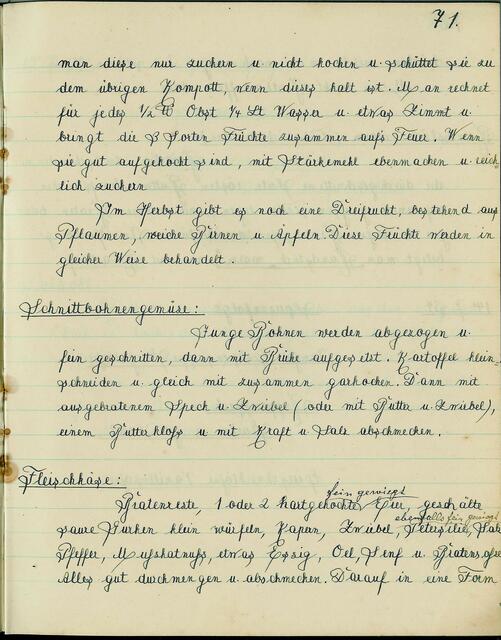 71.
man diese nur zuckern u. nicht kochen u. schüttet sie zu
dem übrigen Kompott, wenn dieses kalt ist. Man rechnet
für jedes 1/2 ℔ Obst 1/4 Lt Wasser u. etwas Zimmt u.
bringt die 3 Sorten Früchte zusammen aufs Feuer. Wenn
sie gut aufgekocht sind, mit Stärkemehl ebenmachen u. reich-
lich zuckern.
Im Herbst gibt es noch eine Dreifrucht, bestehend aus
Pflaumen, weiche Birnen u. Äpfeln. Diese Früchte werden in
gleicher Weise behandelt.
Schnittbohnengemüse:
Junge Bohnen werden abgezogen u.
fein geschnitten, dann mit Brühe aufgesetzt. Kartoffel klein-
schneiden u. gleich mit zusammen garkochen. Dann mit
ausgebratenem Speck u. Zwiebel (oder mit Butter u. Zwiebel),
einem Butterkloß u. mit Kraft u. Salz abschmecken.
Fleischkäse:
fein gewiegt
Bratenreste, 1 oder 2 hartgekochte Eier, geschälte
ebenfalls fein gewiegt
saure Gurken klein würfeln, Kapern, Zwiebel, Petersilie, Salz
Pfeffer, Muskatnuß, etwas Essig, Oel, Senf u. Bratensoße
Alles gut durchmengen u. abschmecken. Darauf in eine Form